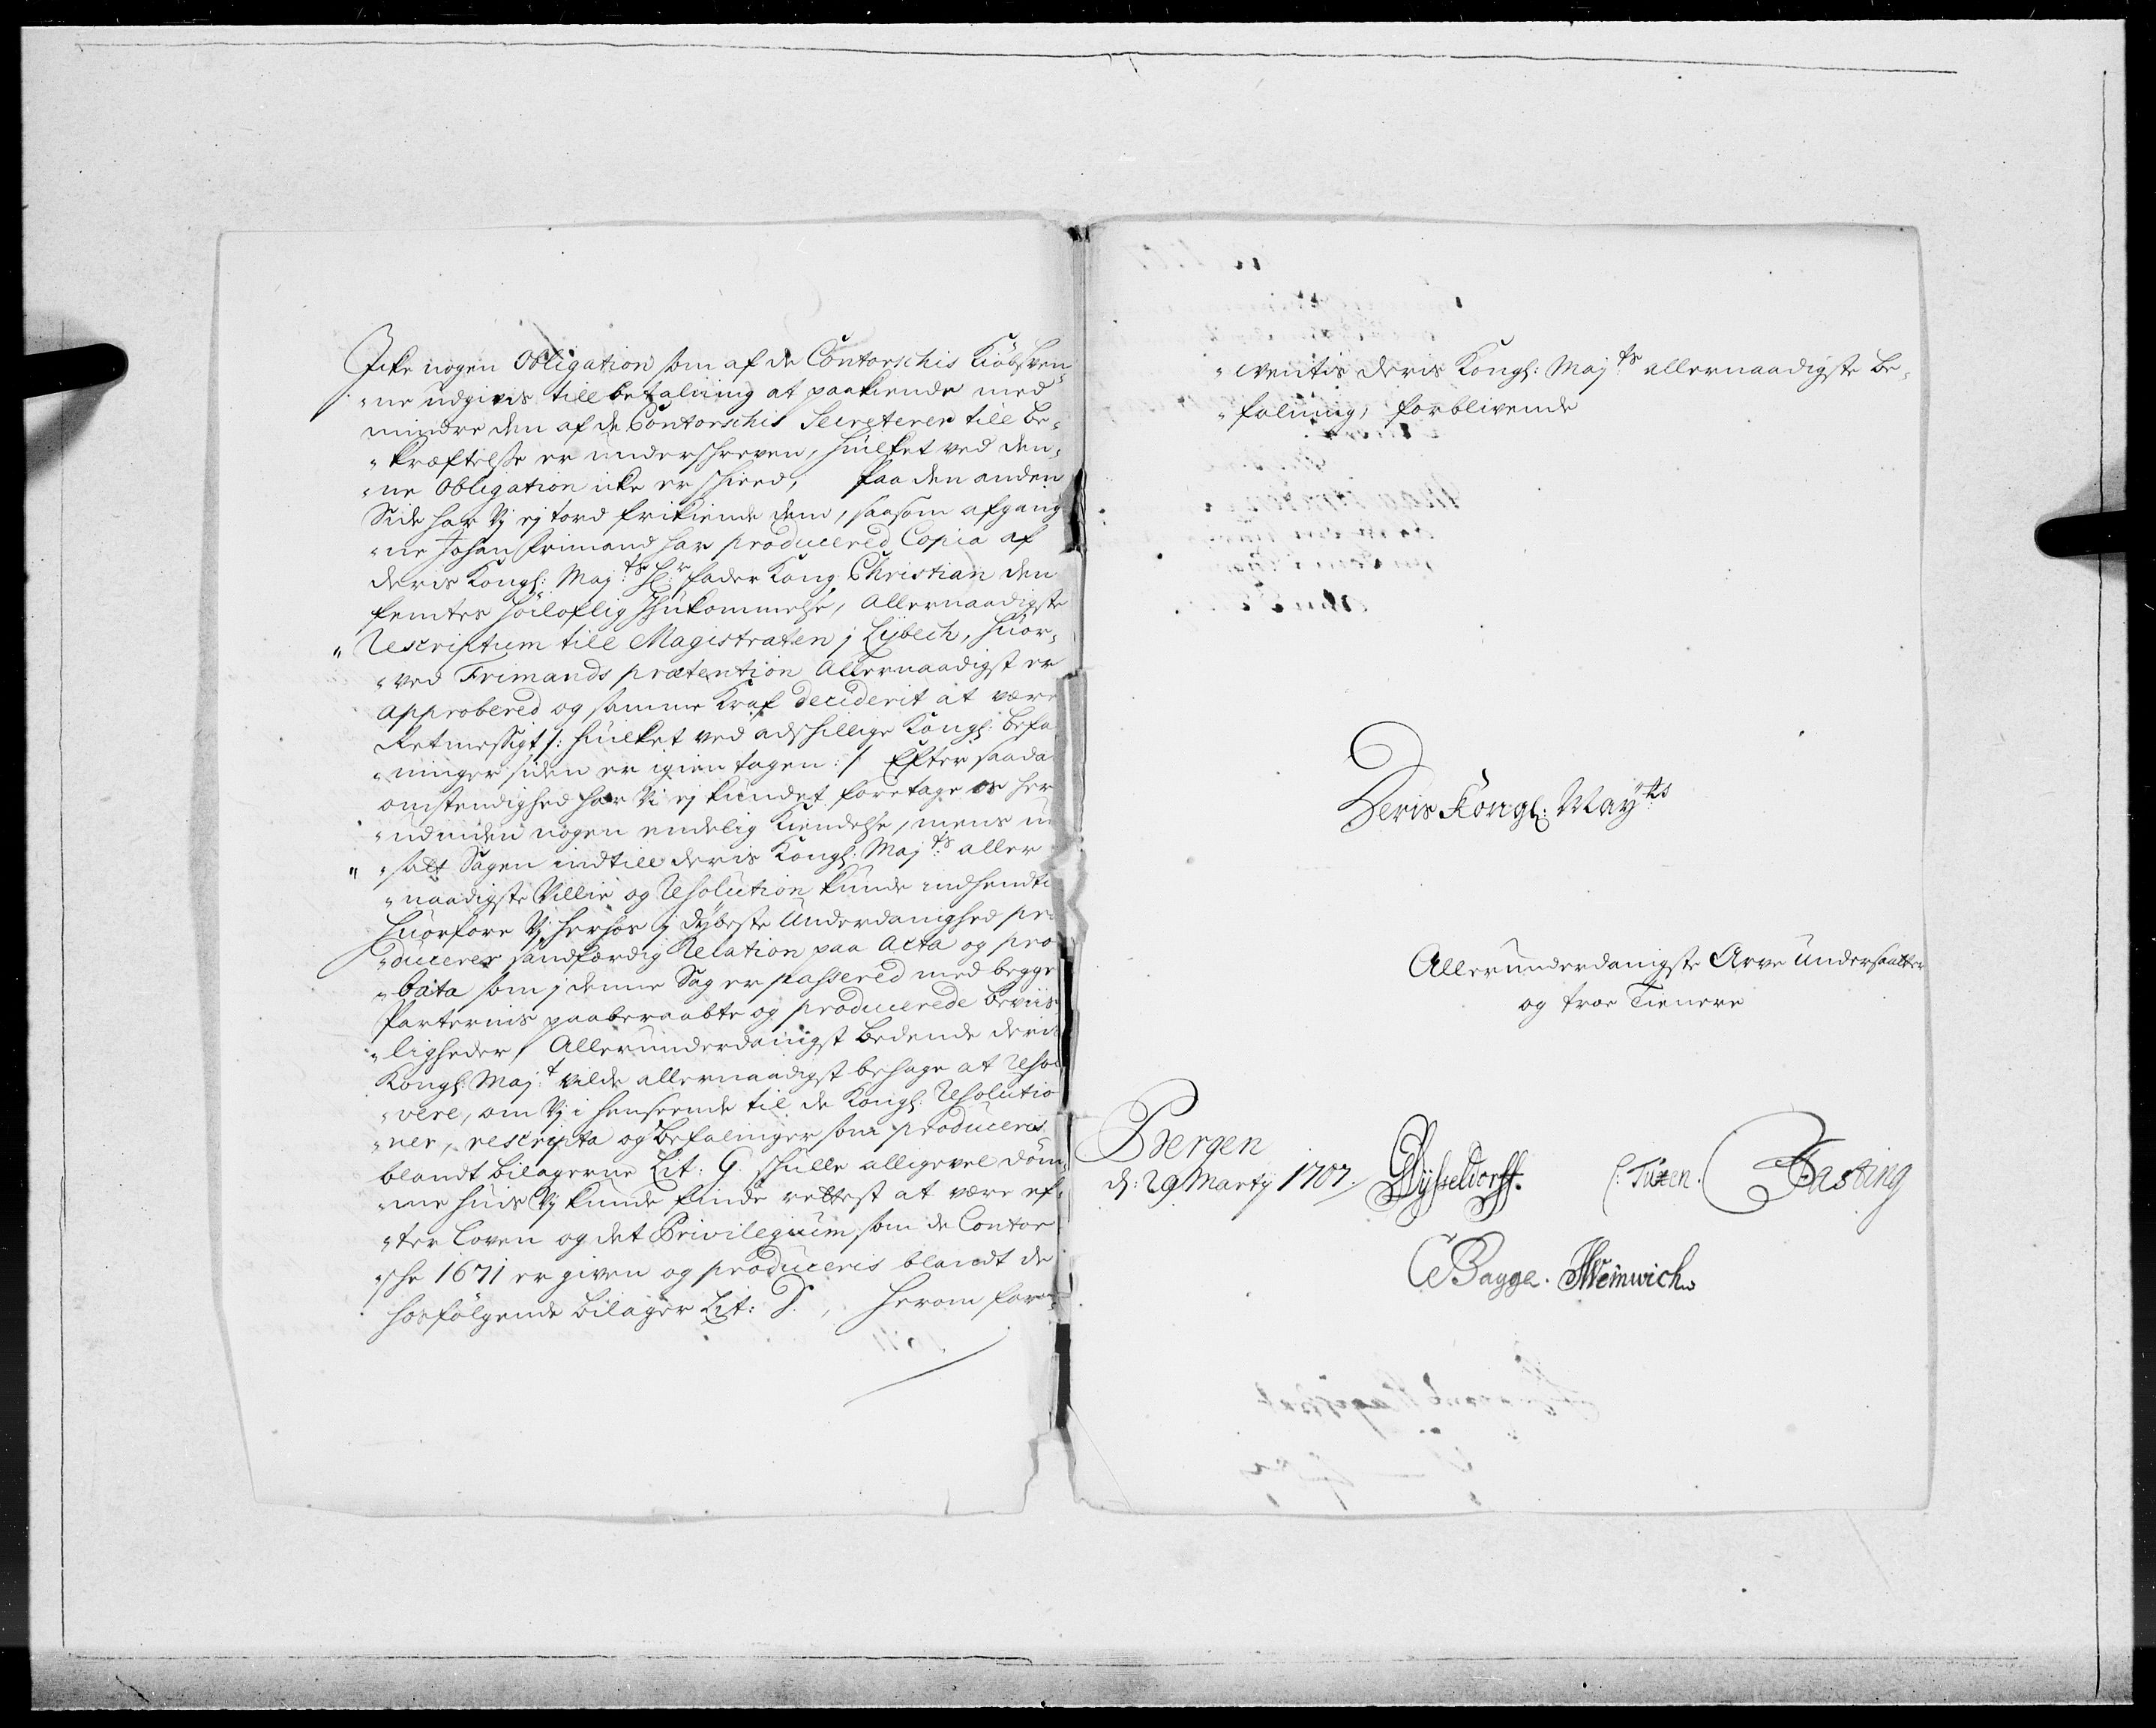 Icke nogen Obligation som af de Contorschis Kiöbsven¬
"ne udgivis till betalning at paakiende med
mindre den af de Contorschis Secreterer till be¬
"kræftelse er underschreven, huilket ved den¬
"ne Obligation icke er scheed, Paa den anden
Side har Vj ej tord frikiende dem, saasom afgang¬
"ne Johan Frimand har producered Copia af
deris Kongl: Maj:ts Hr: fader Kong Christian den
femtes höiloflig Ihukommelse, Allernaadigste
"Rescriptum till Magistraten j Lybech, huor¬
"ved Frimands prætention Allernaadigst er
approbered og samme Kraf deciderit at være
Retmessigt /: huilket ved adschillige Kongl: befa
"ninger siden er igien tagen :/ Efter saada
omstendighed har Vi ej kundet foretage os her
"udinden nogen endelig Kiendelse, mens u
"satt Sagen indtill deris Kongl: Maj:ts aller
"naadigste Villie og Resolution kunde indhendte
huorfore Vj herhos j dybeste Underdanighed pro
"ducerer sandfærdig Relation paa Acta og pro
"bata som j denne Sag er passered med begge
Parternis paaberaabte og producerede beviis
"ligheder, Allerunderdanigst bedende deris
Kongl: Maj:t vilde allernaadigst behage at Resol
"vere, om Vj i henseende til de Kongl: Resolutio
"ner, rescripta og befalinger som produceris
blandt bilagerne Lit: G. schulle alligevel döm¬
"me huis Vj kunde finde rettest at være ef¬
"ter Loven og det Privilegium som de Contor
"sche 1671 er given og produceris blandt de
hosfölgende bilager Lit: D., herom for
"ventis deris Kongl: Maj:ts allernaadigste be¬
"falning, forblivende
Deris Kongl: Mayts
Allerunderdanigste Arve undersaatter
og troe Tienere
Bergen
d: 29 Martij 1707.
Dysseldorff. C. Tüxen. Fasting
CBagge. HWeinwich